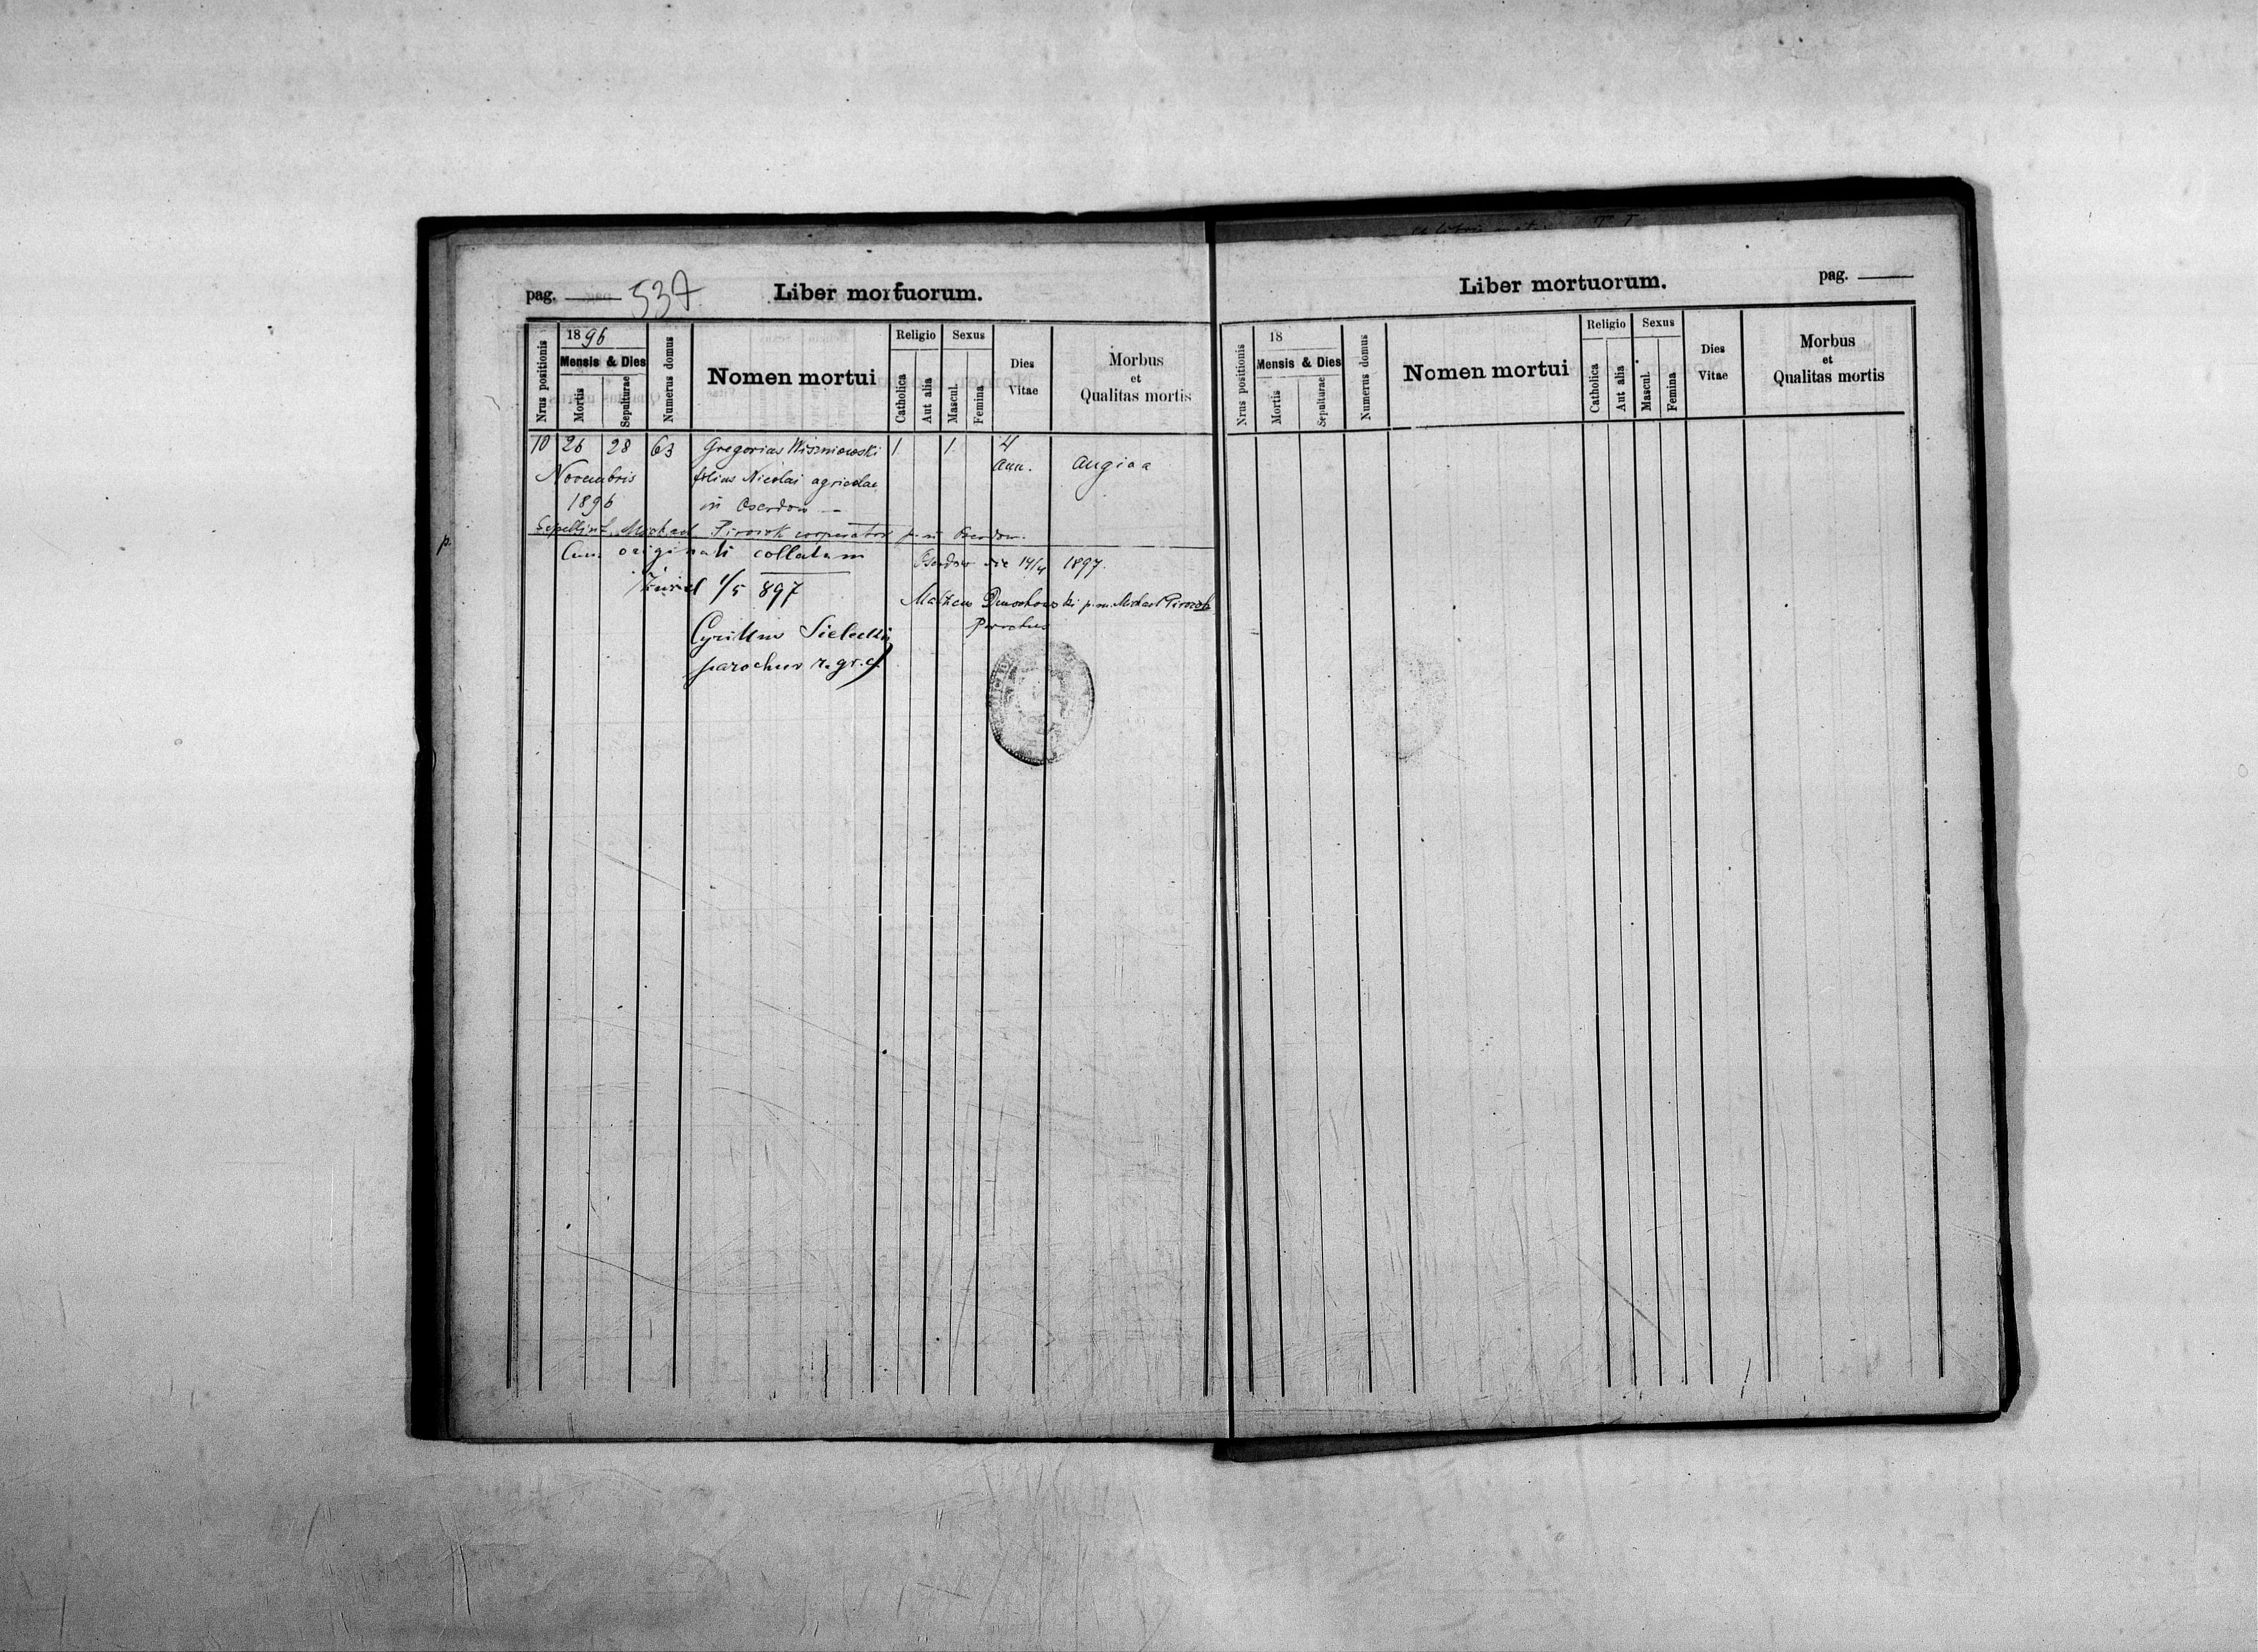 pag. 537 Liber mortuorum.
Nrus positionis
1896
Mensis & Dies
Mortis
Sepulturae
Numerus domus
Nomen mortui
Religio
Catholica
Aut alia
Sexus
Mascul.
Femina
Dies Vitae
Morbus
et
Qualitas mortis
10 26 28 63 Gregorius Wiszniowski 1 1 4
Novembris filius Nicolai agricolae Ann. angina
1896 in Oserdow —
Sepelivit Michael Pirozok cooperator p. in Oserdow.
Cum originali collatum Oserdow die 14/4 1897.
1/5 897
Parochus
Cyrillus Sielecki
parochus r. gr. c.
Liber mortuorum. pag.
Nrus positionis
18
Mensis & Dies
Mortis
Sepulturae
Numerus domus
Nomen mortui
Religio
Catholica
Aut alia
Sexus
Mascul.
Femina
Dies
Vitae
Morbus
et
Qualitas mortis